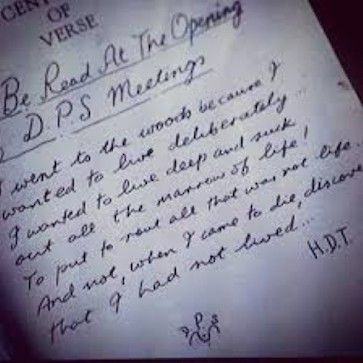 CENT
OF
VERSE
Be Read At The Opening
D.P.S Meetings
I went to the woods because I
wanted to live deliberately...
I wanted to live deep and suck
out all the marrow of life!
To put to rout all that was not life.
And not, when I came to die, discover
that I had not lived...
H.D.T.
D P S